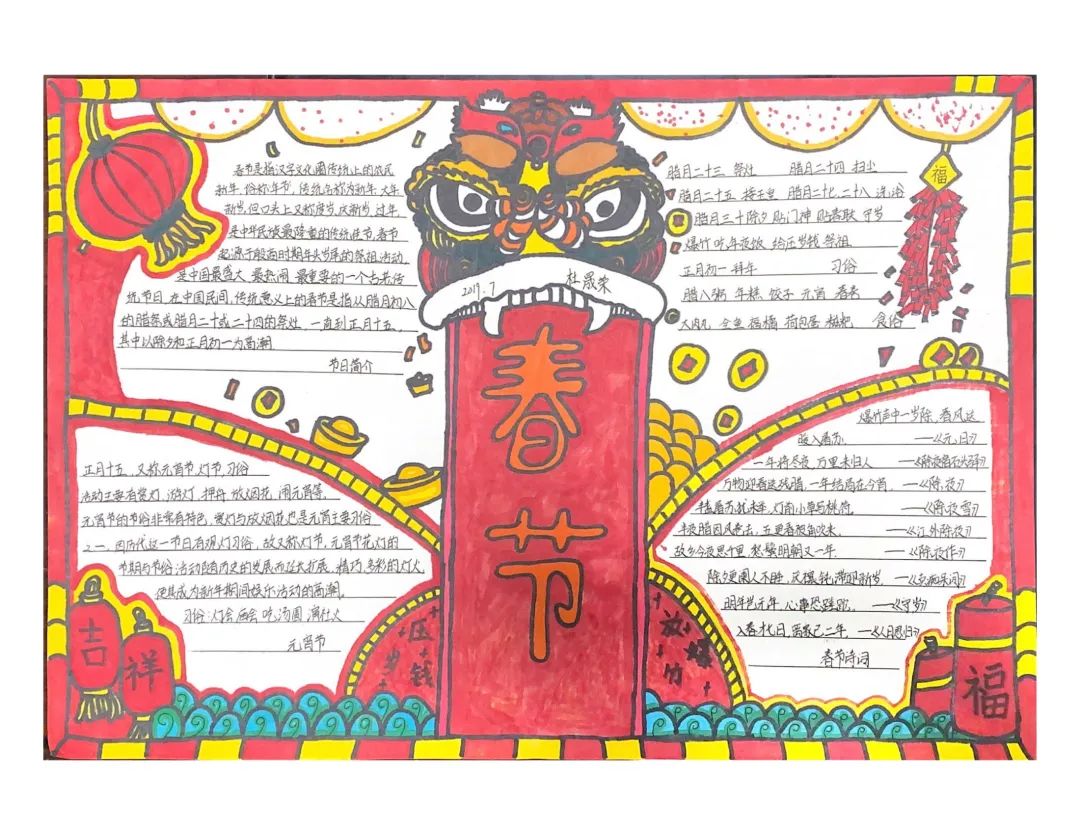 春节是指汉字文化圈传统上的农民
新年,俗称年节,传统名称为新年 大年
新岁,但口头上又称度岁,庆新岁 过年,
是中华民族最隆重的传统佳节,春节
起源于殷商时期年头岁末的祭祖活动,
是中国最盛大 最热闹 最重要的一个古老传
统节日,在中国民间,传统意义上的春节是指从腊月初八
的腊祭或腊月二十或二十四的祭灶,一直到正月十五,
其中以除夕和正月初一为高潮
节日简介
2019.7
杜晟荣
春节
腊月二十三 祭灶 腊月二十四 扫尘
腊月二十五 接玉皇 腊月二七、二十八 洗浴
腊月三十除夕 贴门神 贴春联 守岁
爆竹 吃年夜饭 给压岁钱 祭祖
正月初一 拜年 习俗
腊八粥 年糕 饺子 元宵 春卷
大肉丸 全鱼 福橘 荷包蛋 食俗
福
正月十五,又称元宵节,灯节 习俗
活动主要有赏灯,游灯,押舟,放烟花,闹元宵等,
元宵节的节俗非常有特色,赏灯与放烟花也是元宵主要习俗
之一,因历代这一节日有观灯习俗,故又称灯节,元宵节花灯的
节期与节俗活动随历史的发展而延长扩展,精巧,多彩的灯火,
使其成为新年期间娱乐活动的高潮,
习俗:灯会 庙会 吃汤圆
元宵节
爆竹声中一岁除,春风送
暖入屠苏, ——《元日》
一年将尽夜,万里未归人 ——《除夜宿石头驿》
万物迎春送残腊,一年结局在今宵, ——《除夜》
半盏屠苏犹未举,灯前小草写桃符, ——《除夜雪》
半夜腊因风卷去,五更春被角吹来, ——《江外除夜》
故乡今夜思千里,愁鬓明朝又一年 ——《除夜作》
除夕更阑人不睡,厌禳钝滞迎新岁, ——《卖痴呆词》
明年岂无年,心事恐蹉跎, ——《守岁》
入春才七日,离家已二年, ——《人日思归》
春节诗词
吉
祥
压岁钱
放爆竹
福